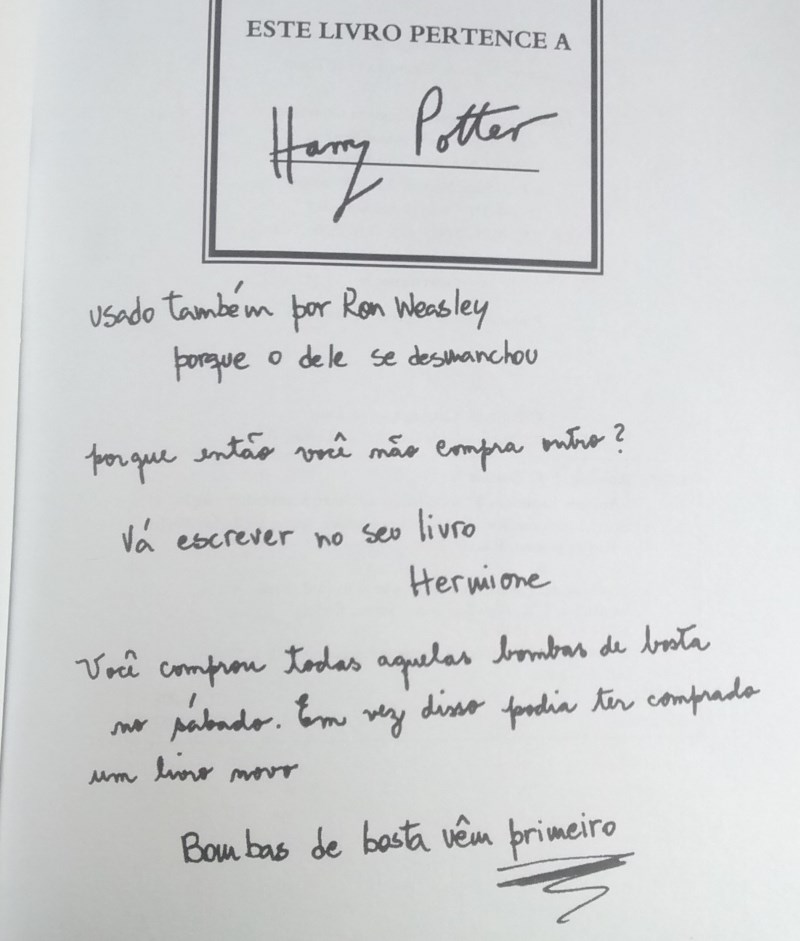 ESTE LIVRO PERTENCE A
Harry Potter
usado também por Ron Weasley
porque o dele se desmanchou
porque então você não compra outro?
Vá escrever no seu livro
Hermione
Você comprou todas aquelas bombas de bosta
no sábado. Em vez disso podia ter comprado
um livro novo
Bombas de bosta vêm primeiro